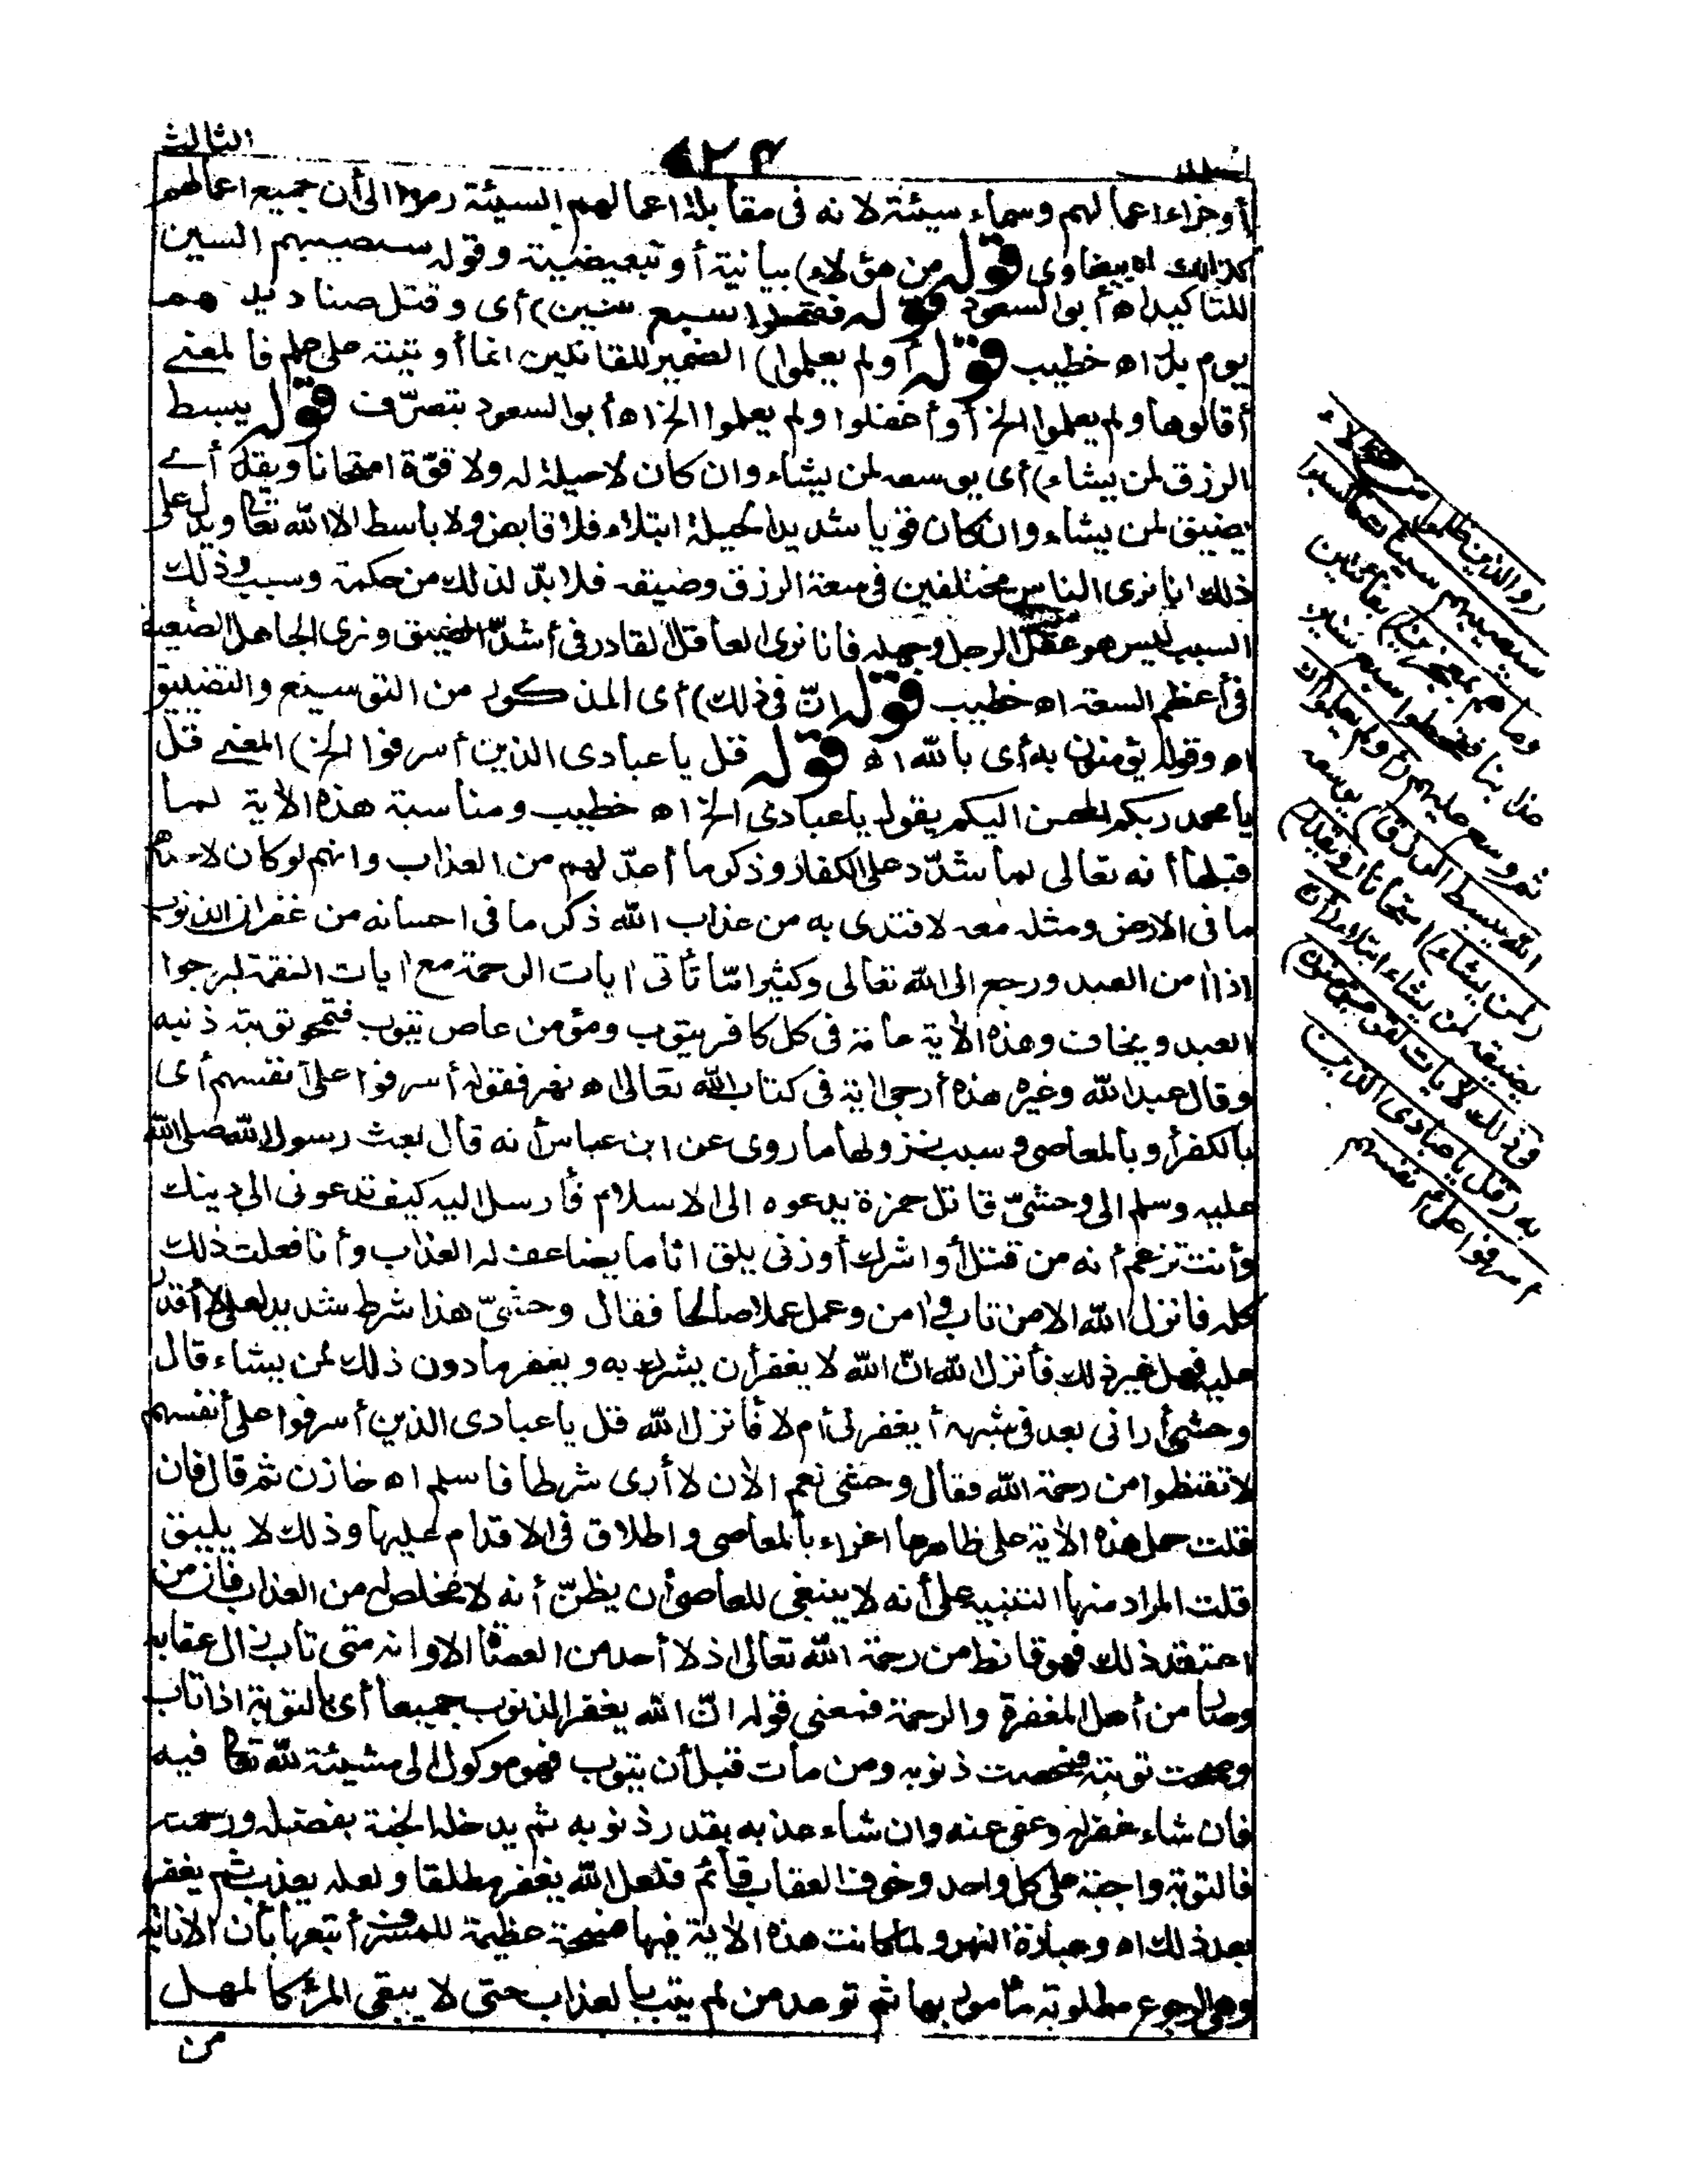 الجلد ٤٢٦ الثالث
أو جزاء اعمالهم وسماه سيئة لانه فى مقابلة اعمالهم السيئة رمزا الى أن جميع اعمالهم
كذلك اه بيضاوى قوله من هؤلاء) بيانية أو تبعيضية وقوله سيصيبهم السين
للتاكيد اه أبو السعود قوله فقحطوا سبع سنين) أى وقتل صناديدهم
يوم بدر اه خطيب قوله أولم يعلموا) الضمير للقائلين انما أوتيته على علم فالمعنى
أقالوها ولم يعلموا الخ أو أغفلوا ولم يعلموا الخ اه أبو السعود بتصرّف قوله يبسط
الرزق لمن يشاء) أى يوسعه لمن يشاء وان كان لا حيلة له ولا قوّة امتحانا ويقدر أى
يضيق لمن يشاء وان كان قويا شديد الحيلة ابتلاء فلا قابض ولا باسط الا الله تعالى ويدل على
ذلك انا نرى الناس مختلفين فى سعة الرزق وضيقه فلا بدّ لذلك من حكمة وسبب وذلك
السبب ليس هو عقل الرجل وجهله فانا نرى العاقل القادر فى أشدّ الضيق ونرى الجاهل الضعيف
فى أعظم السعة اه خطيب قوله انّ فى ذلك) أى المذكور من التوسيع والتضييق
اه وقوله يؤمنون به أى بالله اه قوله قل يا عبادى الذين أسرفوا الخ) المعنى قل
يا محمد ربكم المحسن اليكم يقول يا عبادى الخ اه خطيب ومناسبة هذه الآية لما
قبلها أنه تعالى لما شدّد على الكفار وذكر ما أعدّ لهم من العذاب وانهم لو كان لاحدهم
ما فى الارض ومثله معه لافتدى به من عذاب الله ذكر ما فى احسانه من غفران الذنوب
اذا امن العبد ورجع الى الله تعالى وكثيرا مّا تأتى ايات الرحمة مع ايات النقمة ليرجوا
العبد ويخاف وهذه الآية عامة فى كل كافر يتوب ومؤمن عاص يتوب فتمحو توبته ذنبه
وقال عبد الله وغيره هذه أرجى اية فى كتاب الله تعالى اه نهر فقوله أسرفوا على أنفسهم أى
بالكفر أو بالمعاصى وسبب نزولها ما روى عن ابن عباس أنه قال بعث رسول الله صلى الله
عليه وسلم الى وحشىّ قاتل حمزة يدعوه الى الاسلام فأرسل اليه كيف تدعونى الى دينك
وأنت تزعم أنه من قتل أو اشرك أو زنى يلق اثاما يضاعف له العذاب وأنا فعلت ذلك
كله فانزل الله الا من تاب وامن وعمل عملا صالحا فقال وحشىّ هذا شرط شديد لعلى لا أقدر
عليه فهل غير ذلك فأنزل الله انّ الله لا يغفر أن يشرك به ويغفر ما دون ذلك لمن يشاء قال
وحشى أرانى بعد فى شبهه أيغفر لى أم لا فأنزل الله قل يا عبادى الذين أسرفوا على أنفسهم
لا تقنطوا من رحمة الله فقال وحشى نعم الآن لا أرى شرطا فاسلم اه خازن ثم قال فان
قلت حمل هذه الآية على ظاهرها اغراء بالمعاصى واطلاق فى الاقدام عليها وذلك لا يليق
قلت المراد منها التنبيه على أنه لا ينبغى للعاصى أن يظنّ أنه لا مخلص له من العذاب فان من
اعتقد ذلك فهو قانط من رحمة الله تعالى اذ لا أحد من العصاة الا وانه متى تاب زال عقابه
وصار من أهل المغفرة والرحمة فمعنى قوله انّ الله يغفر الذنوب جميعا أى بالتوبة اذا تاب
وصحت توبته فمحصت ذنوبه ومن مات قبل أن يتوب فهو موكول الى مشيئة الله تعالى فيه
فان شاء غفر له وعفى عنه وان شاء عذبه بقدر ذنوبه ثم يدخله الجنة بفضله ورحمته
فالتوبة واجبة على كل واحد وخوف العقاب قائم فلعل الله يغفر مطلقا ولعله يعذب ثم يغفر
بعد ذلك اه وعبارة النهر ولما كانت هذه الآية فيها فسحة عظيمة للمسرف أتبعها بأن الانابة
وهى الرجوع مطلوبة مأمور بها ثم توعد من لم يتب بالعذاب حتى لا يبقى المرء كالمهمل
من
(والذين ظلموا من هؤلاء
سيصيبهم سيئات ما كسبوا
وما هم بمعجزين) بفائتين
عذابنا فقحطوا سبع سنين
ثم وسع عليهم (أولم يعلموا أن
الله يبسط الرزق) يوسعه
(لمن يشاء) امتحانا (ويقدر)
يضيقه لمن يشاء ابتلاء (ان
فى ذلك لآيات لقوم يؤمنون)
به (قل يا عبادى الذين
أسرفوا على أنفسهم